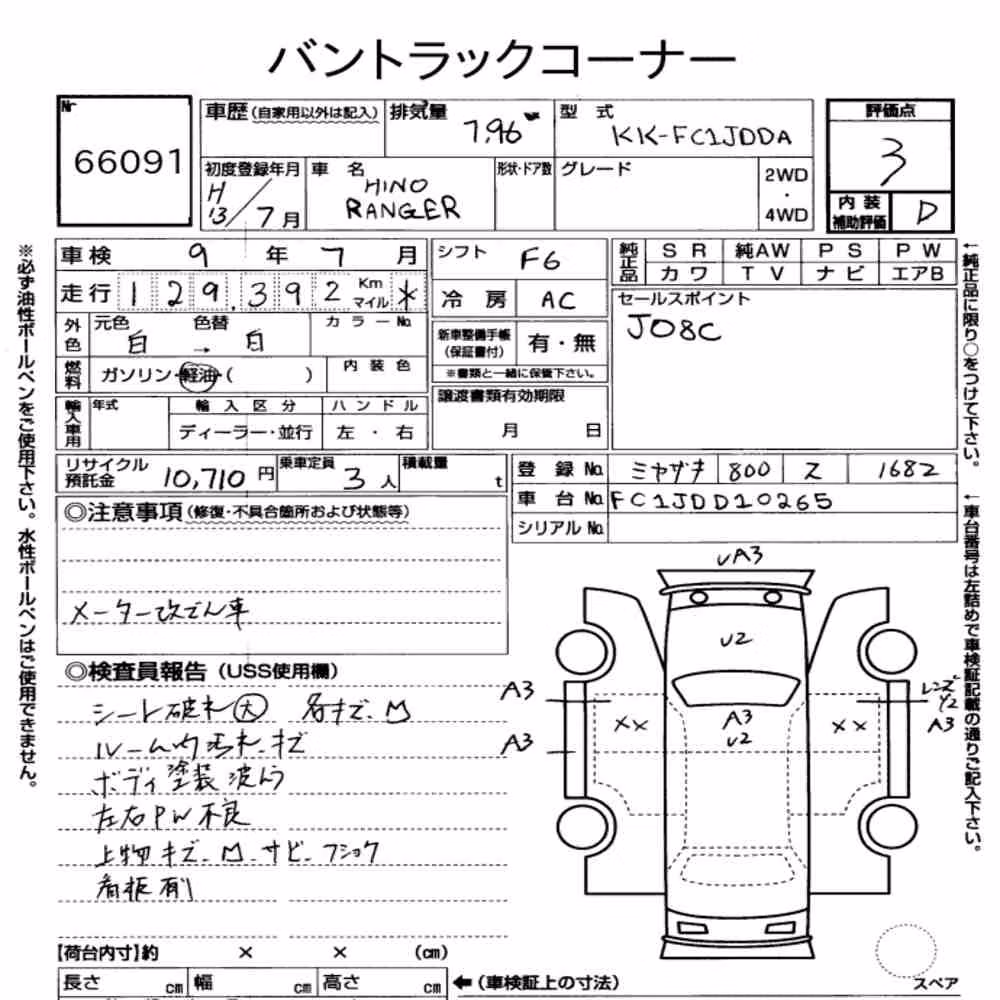 バントラックコーナー
Nr 66091
車歴(自家用以外は記入) 排気量 7.96 型式 KK-FC1JDDA
評価点 3
初度登録年月 H13/7月 車名 HINO RANGER 形状・ドア数 グレード 2WD・4WD
内装補助評価 D
車検 9年7月
走行 129.392 Km マイル *
外色 元色 白 → 色替 白 カラーNo.
燃料 ガソリン・軽油・( ) 内装色
輸入車用 年式 輸入区分 ハンドル
ディーラー・並行 左・右
シフト F6
冷房 AC
新車整備手帳(保証書付) 有・無
※書類と一緒に保管下さい。
譲渡書類有効期限
月 日
純正品 SR 純AW PS PW
カワ TV ナビ エアB
セールスポイント
J08C
リサイクル預託金 10,710円 乗車定員 3人 積載量 t
登録No. ミヤザキ 800 ス 1682
車台No. FC1JDD10265
シリアルNo.
◎注意事項(修復・不具合箇所および状態等)
メーター改ざん車
◎検査員報告(USS使用欄)
シート破れ大 各キズ.凹
ルーム内汚れ.キズ
ボディ塗装波ムラ
左右PW不良
上物キズ.凹.サビ.フショク
看板有り
【荷台内寸】約 × × (cm)
長さ cm 幅 cm 高さ cm ←(車検証上の寸法)
UA3
U2
A3
U2
A3
A3
××
××
レンズ
Y2
A3
スペア
※必ず油性ボールペンをご使用下さい。水性ボールペンはご使用できません。
←純正品に限り○をつけて下さい。
←車台番号は左詰めで車検証記載の通りご記入下さい。